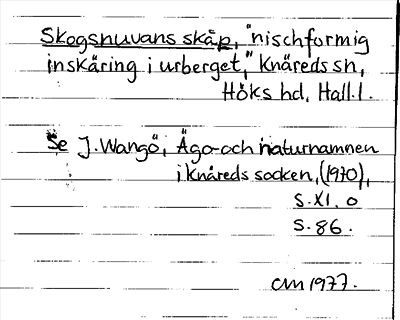 Skogsnuvans skåp, "nischformig
inskäring i urberget", Knäreds sn,
Höks hd, Hall.l.
Se J. Wangö, Ägo- och naturnamnen
i Knäreds socken, (1970),
s. XI. o
s. 86.
CM 1977.